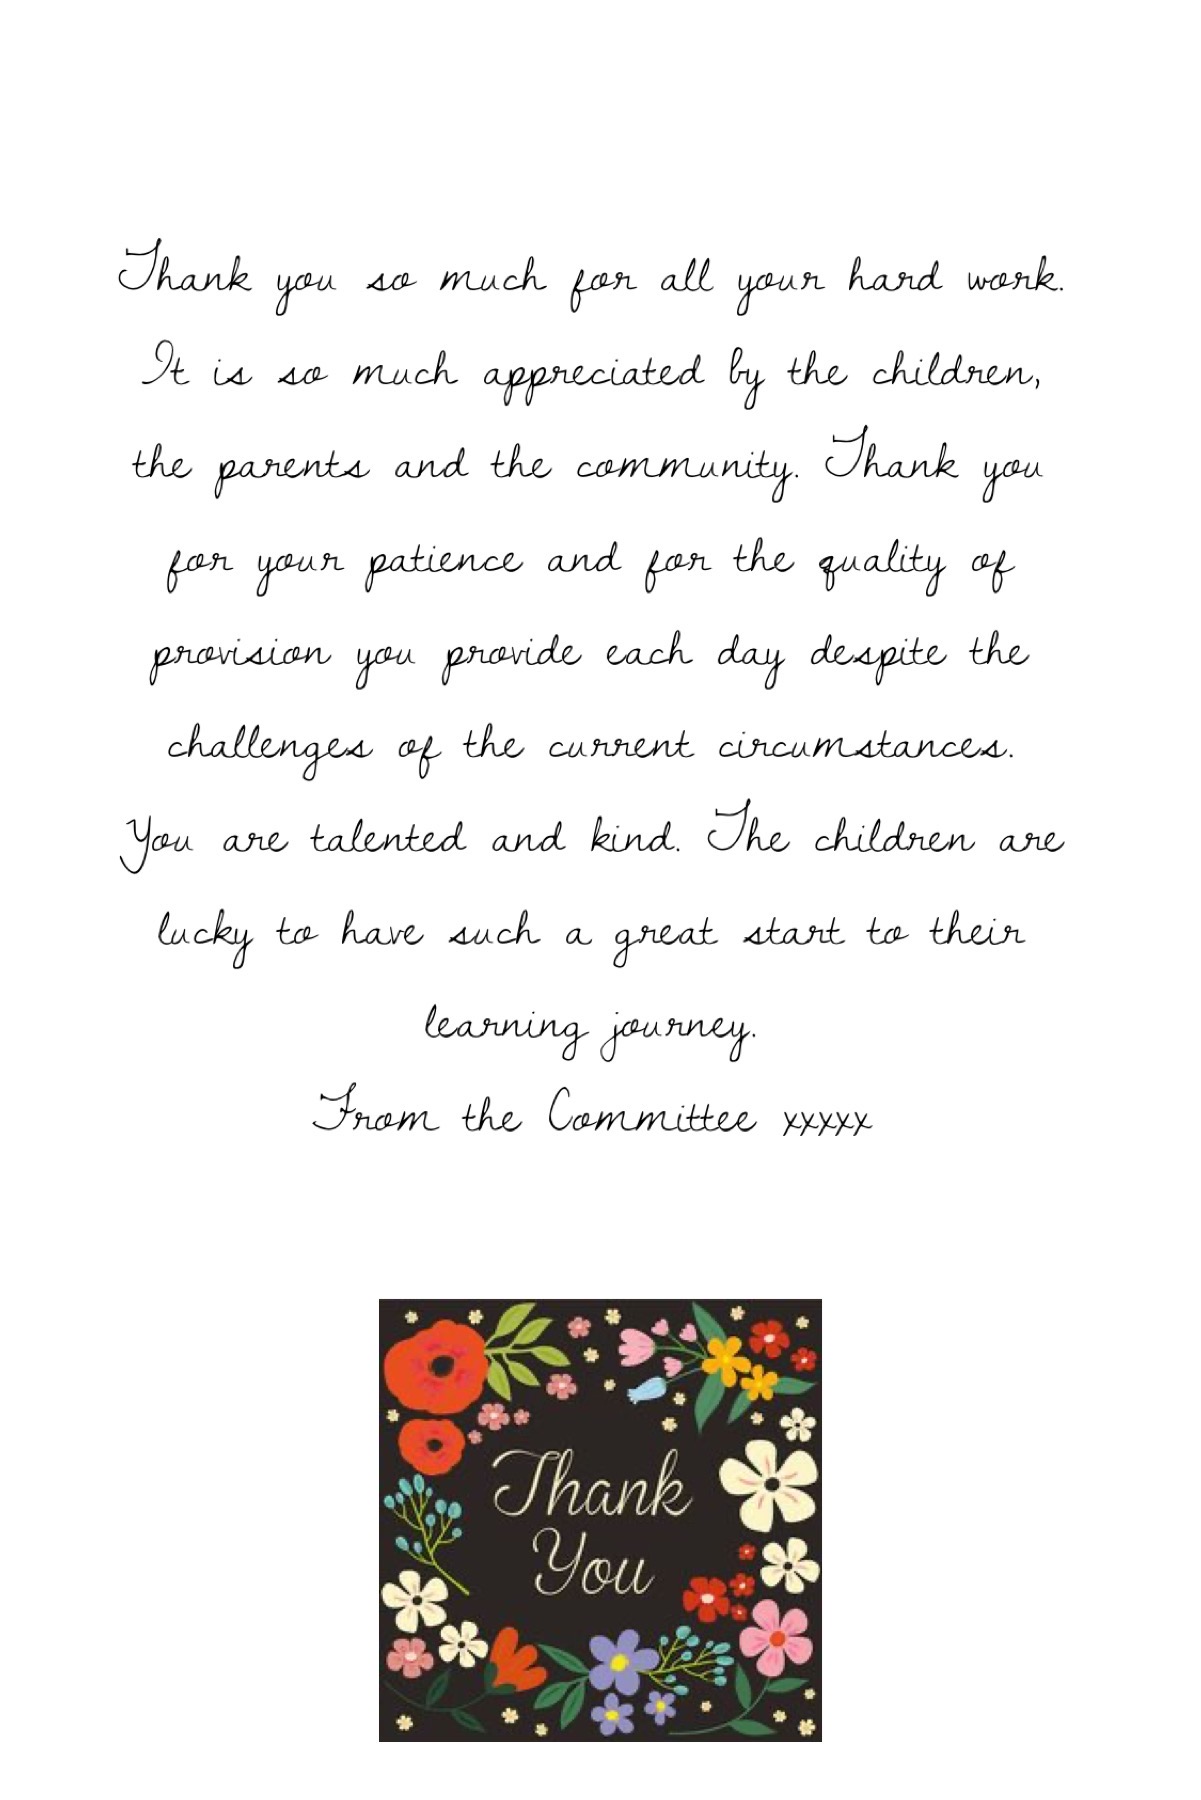 Thank you so much for all your hard work.
It is so much appreciated by the children,
the parents and the community. Thank you
for your patience and for the quality of
provision you provide each day despite the
challenges of the current circumstances.
You are talented and kind. The children are
lucky to have such a great start to their
learning journey.
From the Committee xxxxx
Thank
You